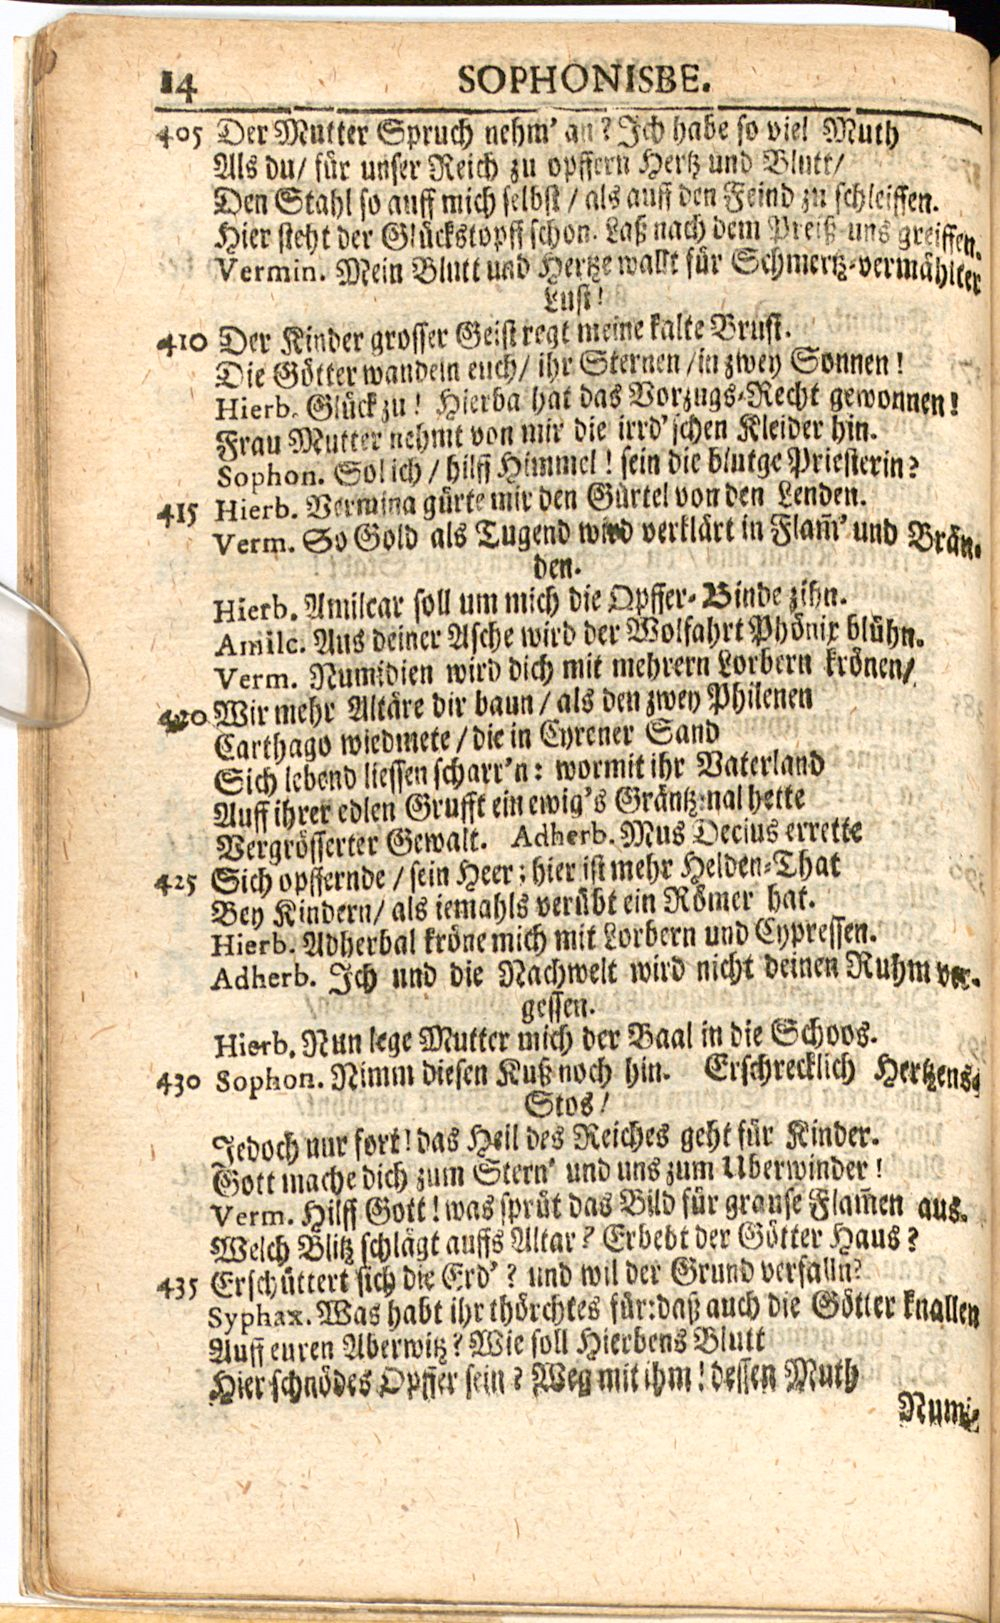 14 SOPHONISBE.
405 Der Mutter Spruch nehm' an? Ich habe so viel Muth
Als du/ für unser Reich zu opffern Hertz und Blutt/
Den Stahl so auff mich selbst / als auff den Feind zu schleiffen.
Hier steht der Glückstopff schon. Laß nach dem Preiß uns greiffen.
Vermin. Mein Blutt und Hertze wallt für Schmertz-vermählter
Lust!
410 Der Kinder grosser Geist regt meine kalte Brust.
Die Götter wandeln euch/ ihr Sternen /in zwey Sonnen!
Hierb. Glück zu! Hierba hat das Vorzugs-Recht gewonnen!
Frau Mutter nehmt von mir die irrd'schen Kleider hin.
Sophon. Sol ich / hilff Himmel! sein die blutge Priesterin?
415 Hierb. Vermina gürte mir den Gürtel von den Lenden.
Verm. So Gold als Tugend wird verklärt in Flam̃' und Brän-
den.
Hierb. Amilcar soll um mich die Opffer-Binde zihn.
Amilc. Aus deiner Asche wird der Wolfahrt Phönix blühn.
Verm. Numidien wird dich mit mehrern Lorbern krönen/
420 Wir mehr Altäre dir baun / als den zwey Philenen
Carthago wiedmete / die in Cyrener Sand
Sich lebend liessen scharr'n: wormit ihr Vaterland
Auff ihrer edlen Grufft ein ewig's Gräntzmal hette
Vergrösserter Gewalt. Adherb. Mus Decius errette
425 Sich opffernde / sein Heer; hier ist mehr Helden-That
Bey Kindern/ als iemahls verübt ein Römer hat.
Hierb. Adherbal kröne mich mit Lorbern und Cypressen.
Adherb. Ich und die Nachwelt wird nicht deinen Ruhm ver-
gessen.
Hierb. Nun lege Mutter mich der Baal in die Schoos.
430 Sophon. Nimm diesen Kuß noch hin. Erschrecklich Hertzens-
Stos!
Jedoch nur fort! das Heil des Reiches geht für Kinder.
Gott mache dich zum Stern' und uns zum Uberwinder!
Verm. Hilff Gott! was sprüt das Bild für grause Flam̃en aus.
Welch Blitz schlägt auffs Altar? Erbebt der Götter Haus?
435 Erschüttert sich die Erd'? und wil der Grund verfalln?
Syphax. Was habt ihr thörchtes für: daß auch die Götter knallen
Auff euren Aberwitz? Wie soll Hierbens Blutt
Hier schnödes Opffer sein? Weg mit ihm! dessen Muth
Numi-